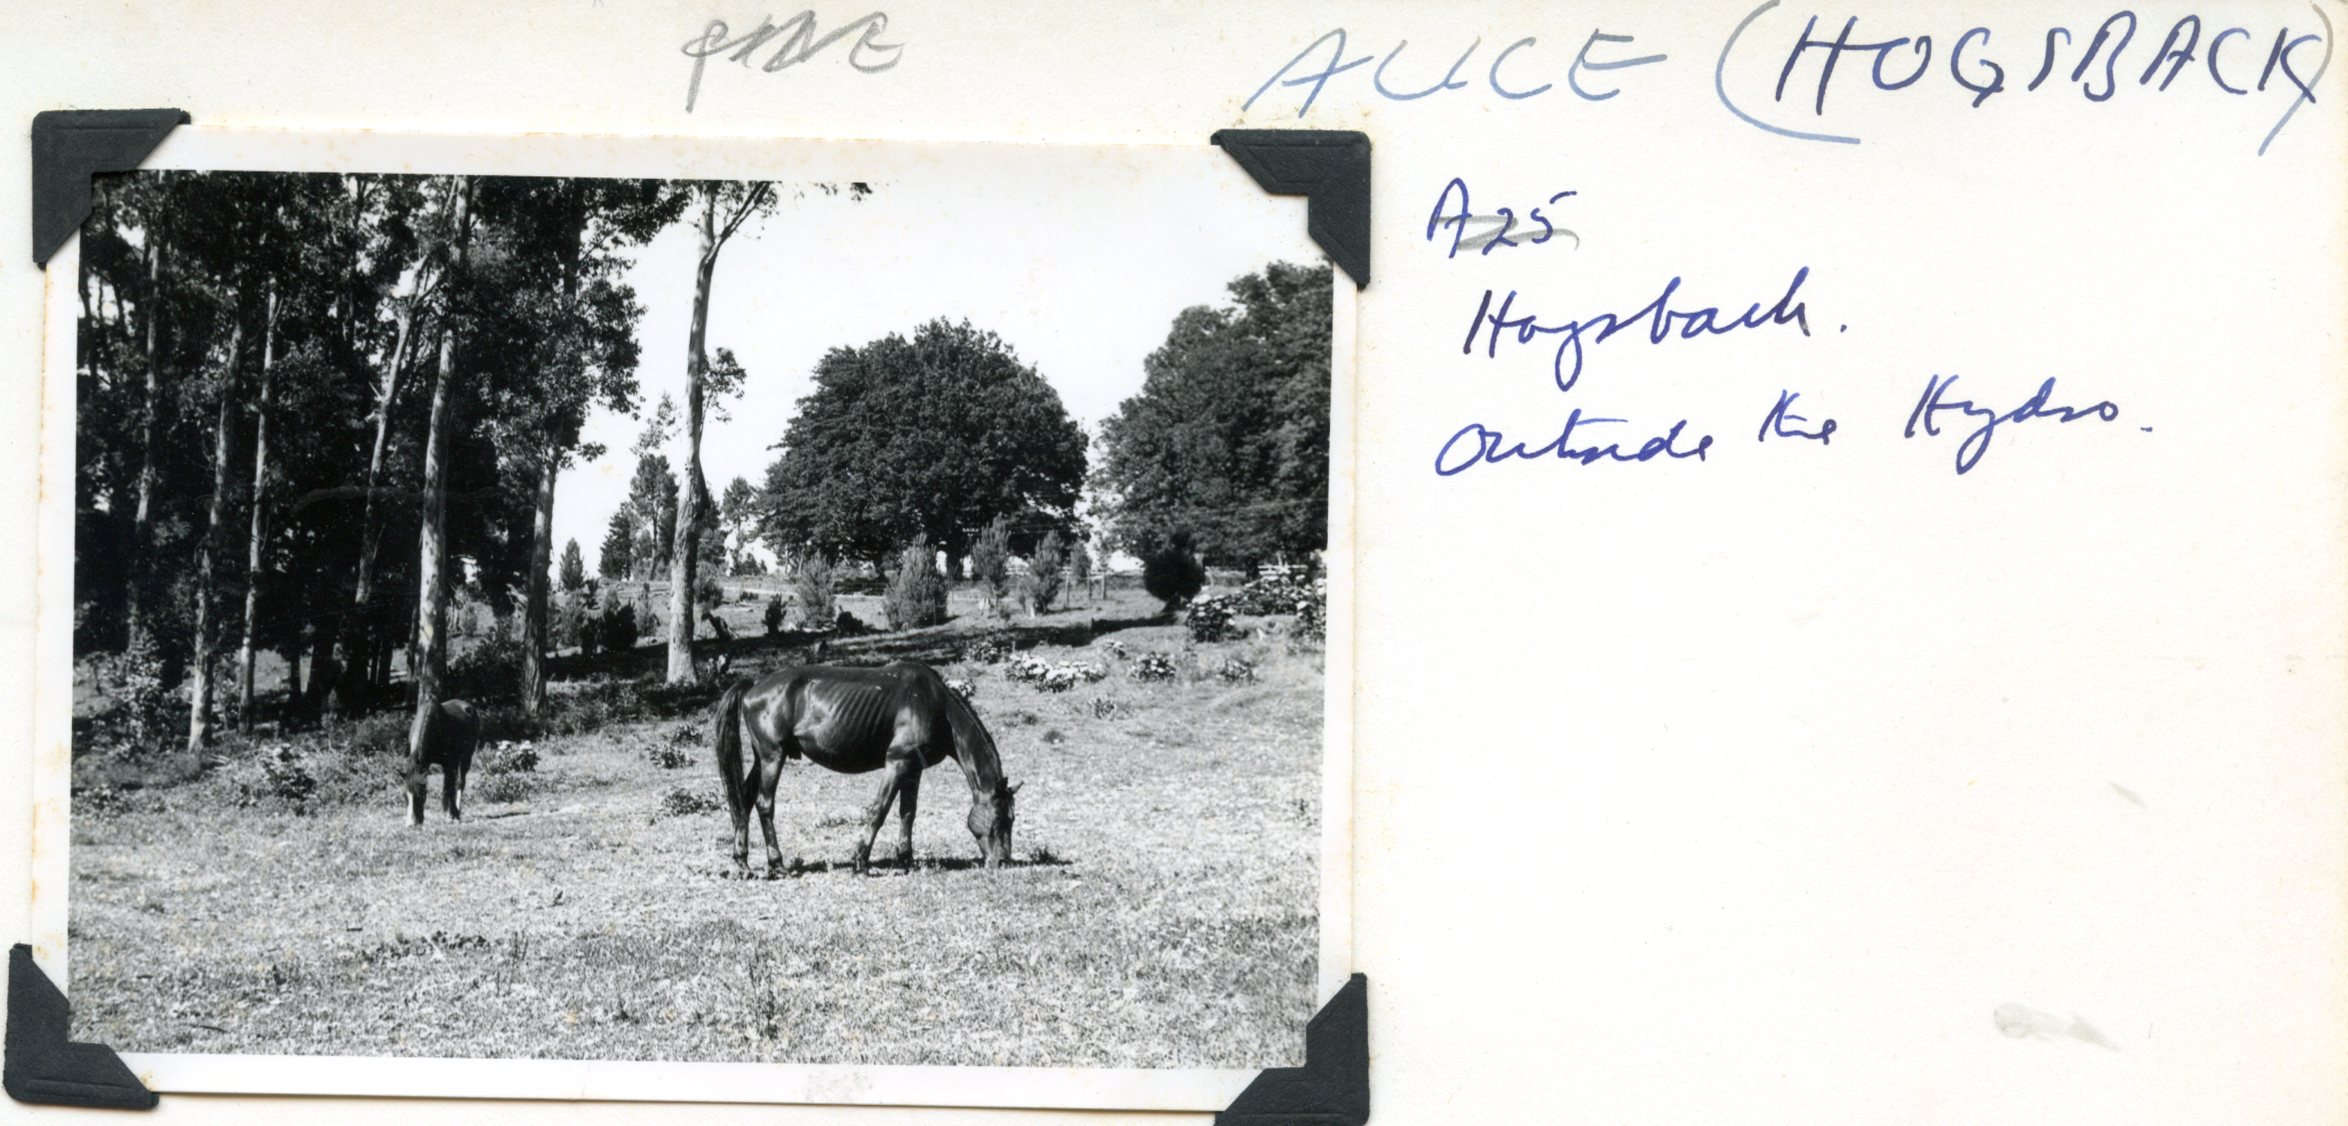 ALICE (HOGSBACK)
A25
Hogsback.
Outside the Hydro.